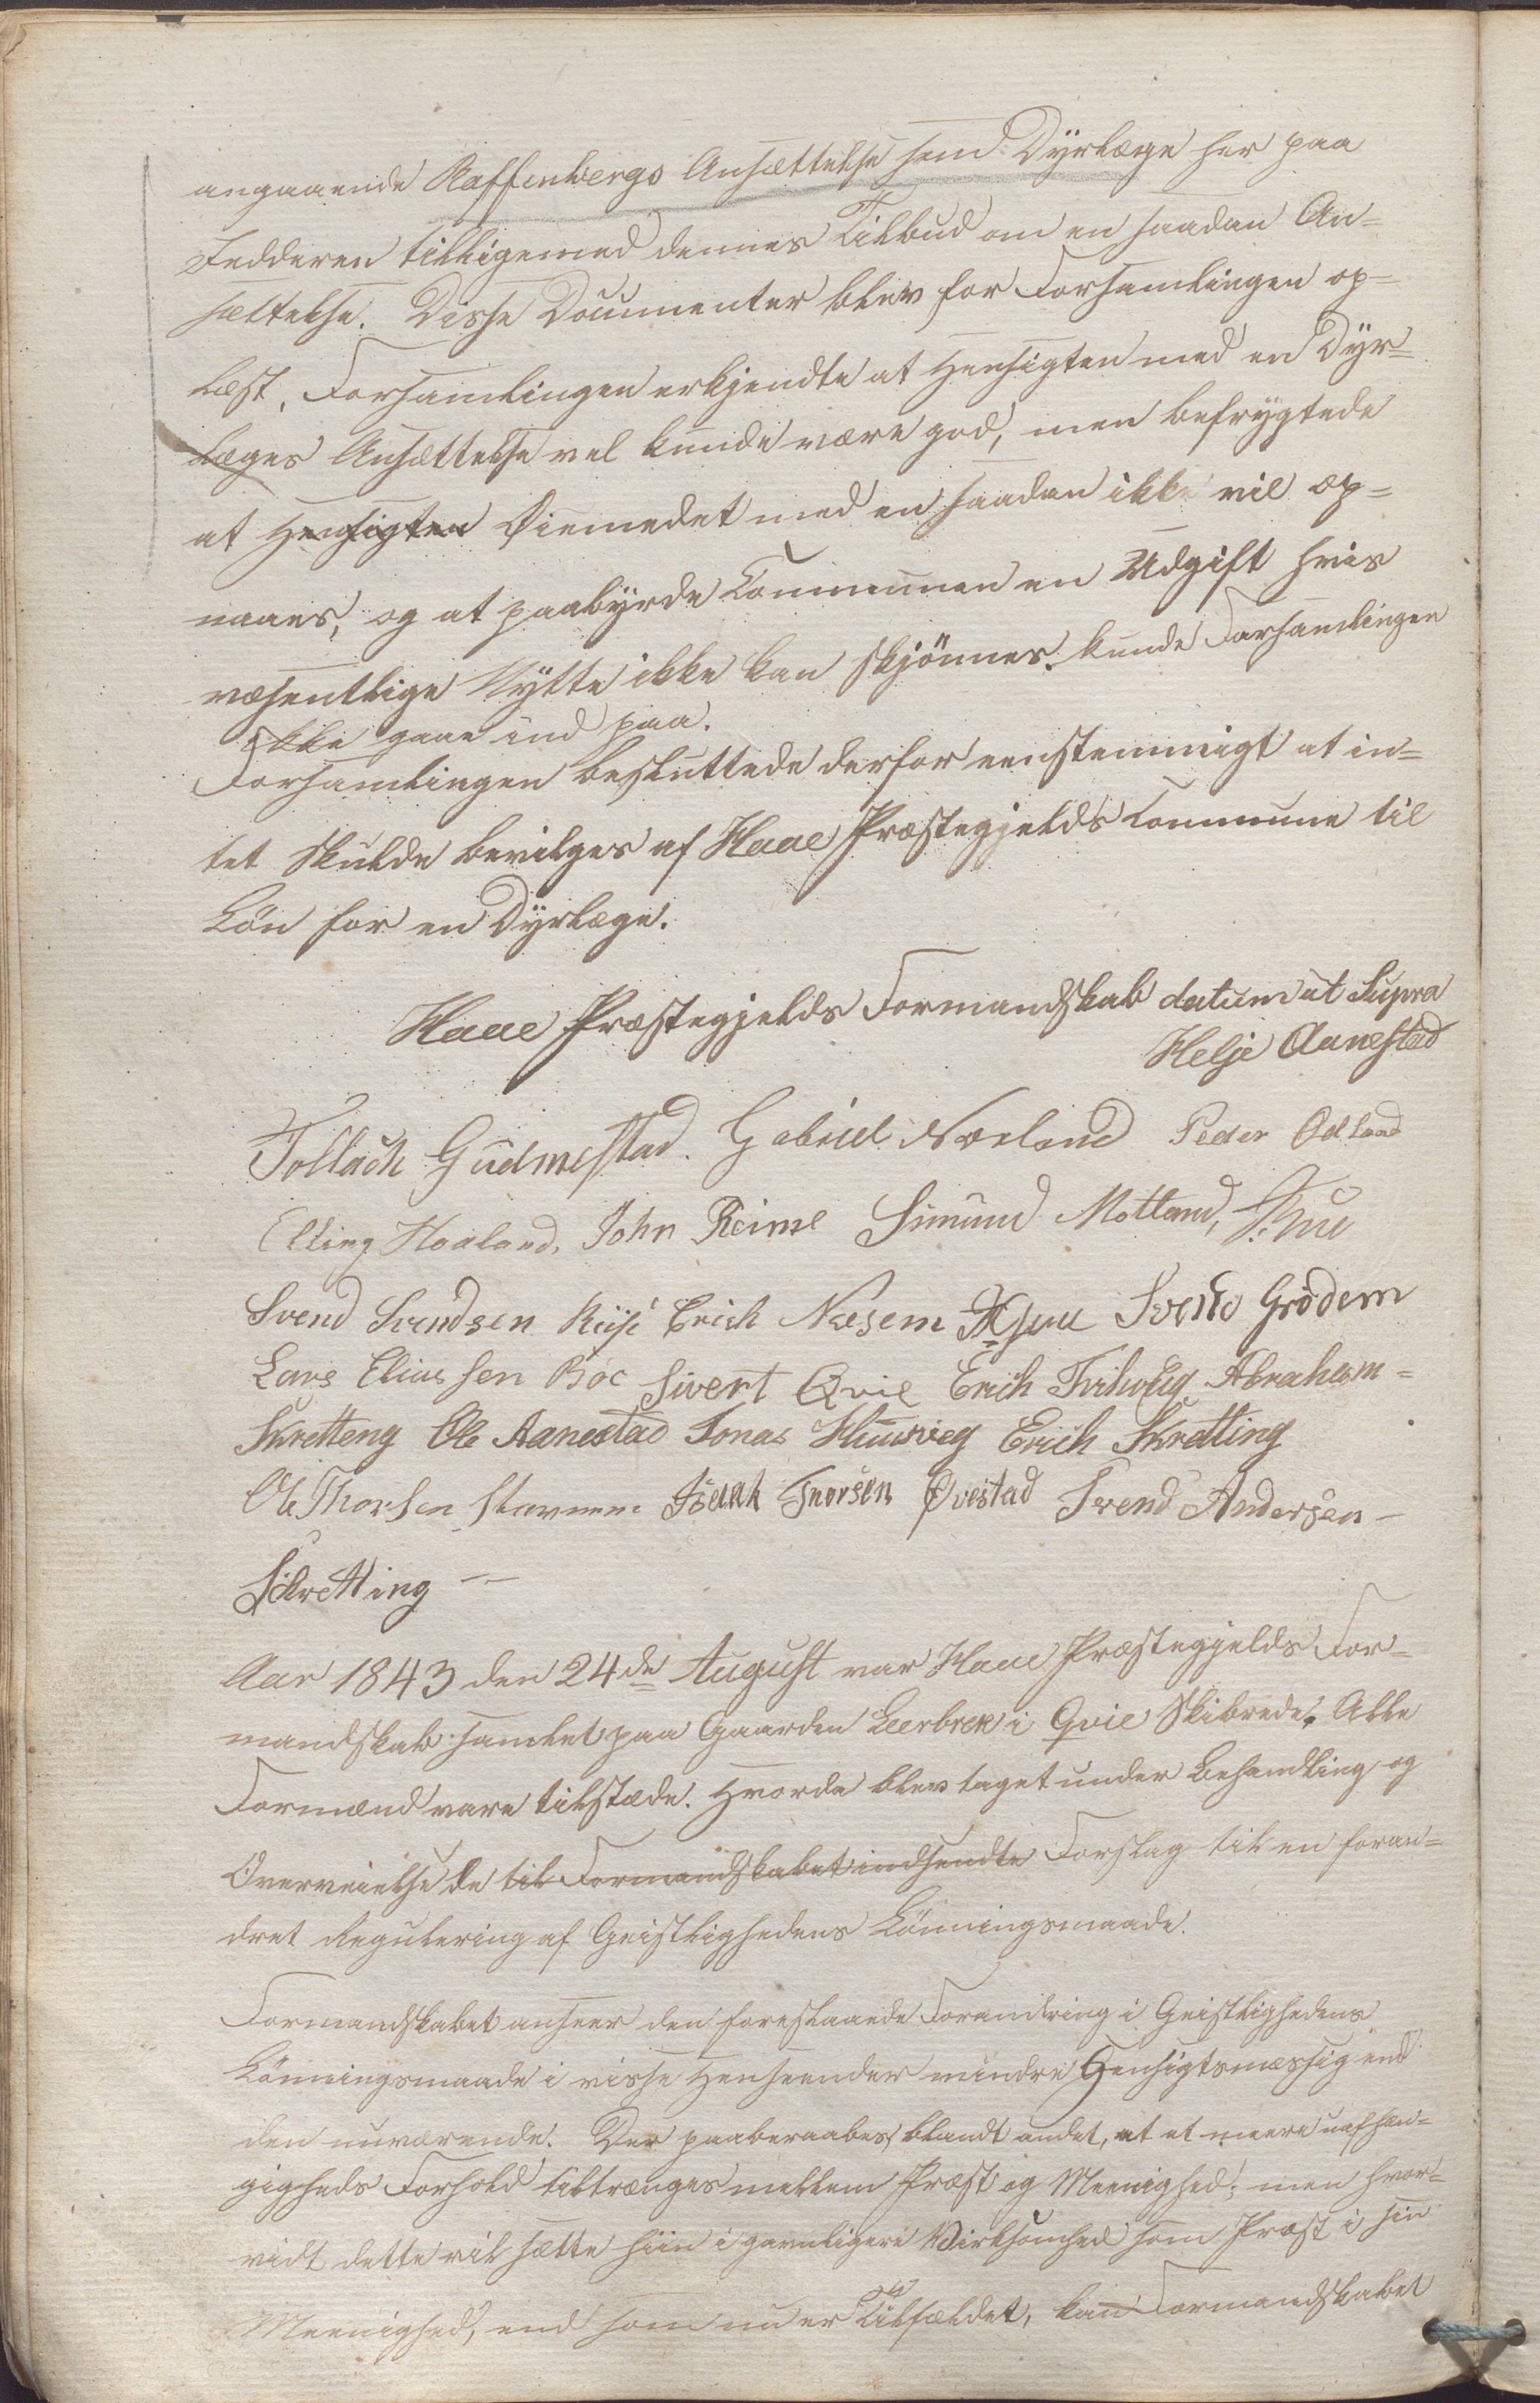 angaaende Kaffenbergs Ansættelse som Dyrlæge her paa
Jedderen tilligemed dennes Tilbud om en saadan An-
sættelse. Disse Documenter blev for Forsamlingen op-
læst. Forsamlingen erkjendte at Hensigten med en Dyr-
læges Ansættelse vel kunde være god, men befrygtede
at Hensigten Øiemedet med en saadan ikke vil op-
naaes, og at paabyrde Communen en Udgift hvis
væsentlige Nytte ikke kan skjönnes kunde Forsamlingen
ikke gaae ind paa.
Forsamlingen besluttede derfor eenstemmigt at in-
tet skulde bevilges af Haae Præstegjelds Commune til
Løn for en Dyrlæge.
Haae Præstegjelds Formandskab datum ut Supra
Helje Aanestad
Tollach Gudmestad. Gabriel Nærland Peder Odland
Elling Haaland, John Reime Simund Motland,
Svend Svendsen Riise Erich Næsem Svend Grödem
Lars Eliassen Boe Sivert Qvie Erich Tvihoug Abraham-
Skretteng Ole Aanestad Jonas Erich Skretting
Ole Thorsen Stavnem Isaak Tnorsen Øvestad Svend Andersen-
Skretting -
Aar 1843 den 24de August var Haae Præstegjelds For-
mandskab samlet paa Gaarden Leerbrek i Qvie Skibrede. Alle
Formænd vare tilstæde. Hvorda blev taget under Behandling og
Overveielse de til Formandskabet indsendte Forslag til en foran-
dret Regulering af Geistlighedens Lønningsmaade.
Formandskabet anseer den foreslaaede Forandring i Geistlighedens
Lønningsmaade i visse Henseender mindre Hensigtsmæssig end
den nuværende. Der paaberaabes blandt andet, at et meere uafhæn-
gigheds Forhold tiltrænges mellem Præst og Meenighed; men hvor-
vidt dette vil sætte hiin i gavnligere Virksomhed som Præst i sin
Meenighed, end som nu er Tilfældet, kan Formandskabet